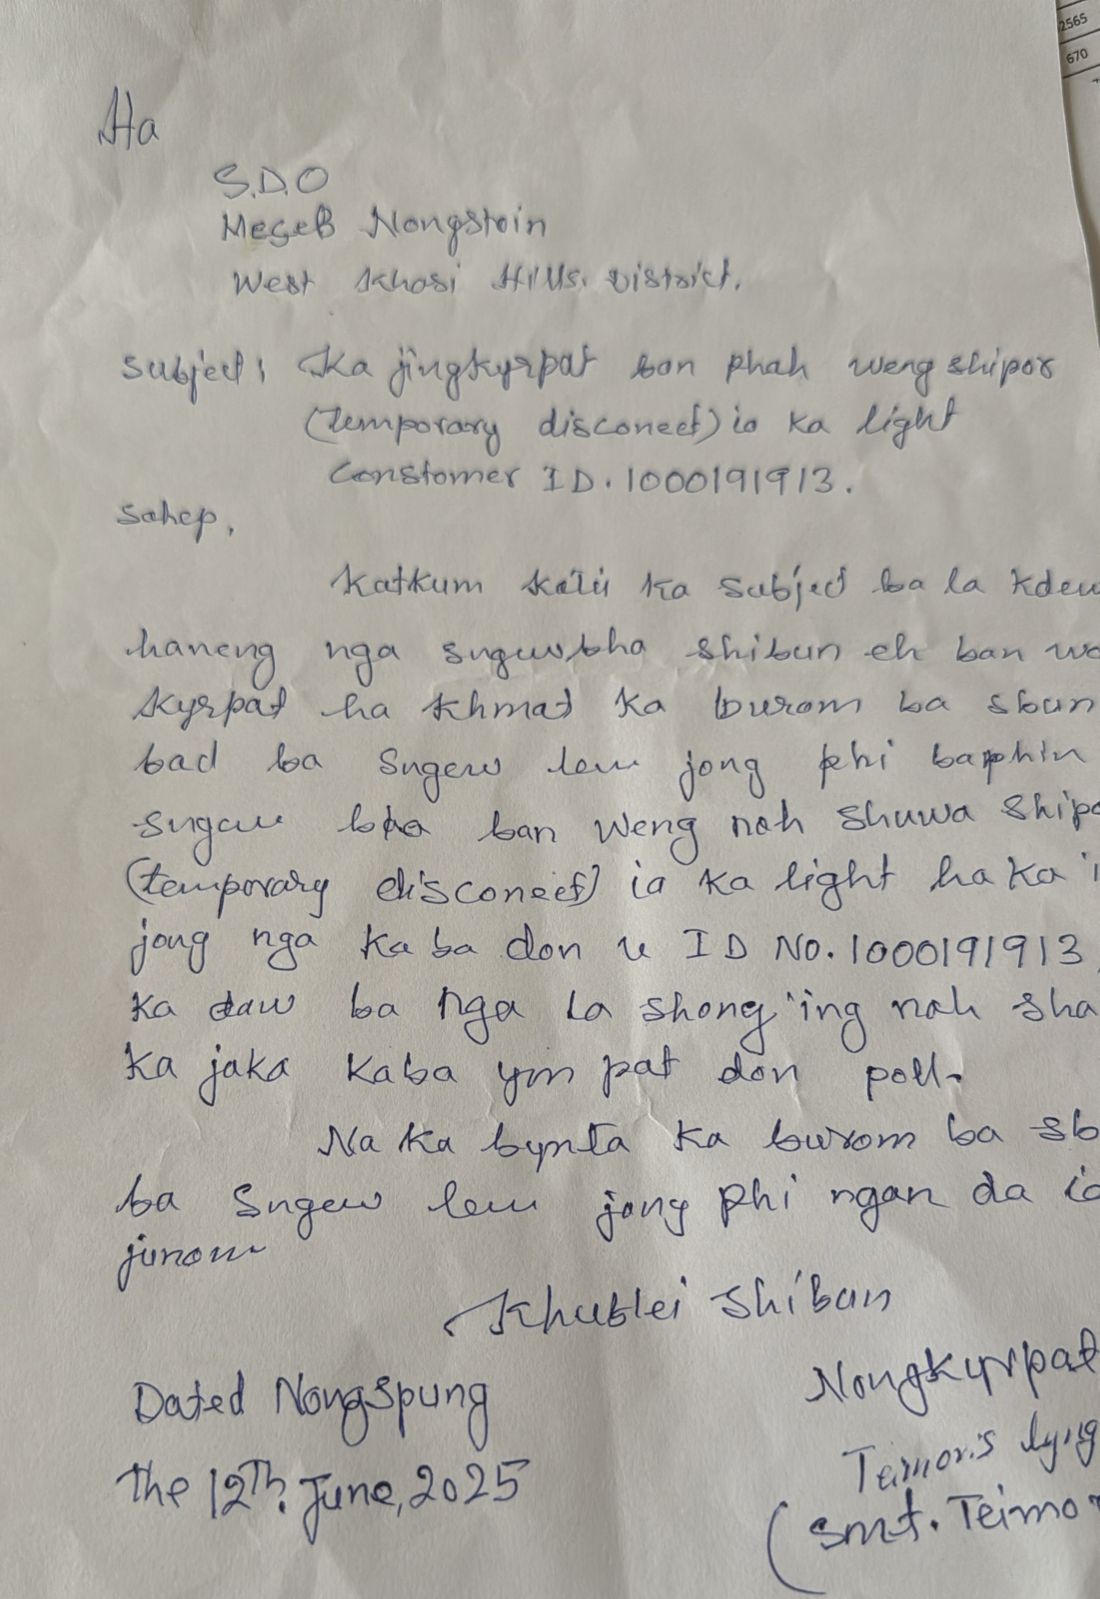 2565
670
Ha
S.D.O
MeSeB Nongstoin
West Khasi Hills. District.
Subject: Ka jingkyrpat ban phah weng shipor
(temporary disconeet) ia ka light
Constomer ID. 1000191913.
Sahep,
Katkum kali ka Subject ba la kdew
haneng nga sngewbha shibun eh ban wa
kyrpat ha khmat ka burom ba sbun
bad ba sngew lem jong phi baphin
sngew bha ban weng noh shuwa shipo
(temporary disconeet) ia ka light ha ka 'i
jong nga ka ba don u ID No. 1000191913,
ka daw ba nga la shong 'ing noh sha
ka jaka kaba ym pat don poll.
Na ka bynta ka burom ba sb
ba sngew lem jong phi ngan da ia
junom
Khublei Shibun
Nongkyrpat
Dated Nongspung
Teimor.s lyng
the 12Th. June, 2025
(Smt. Teimor